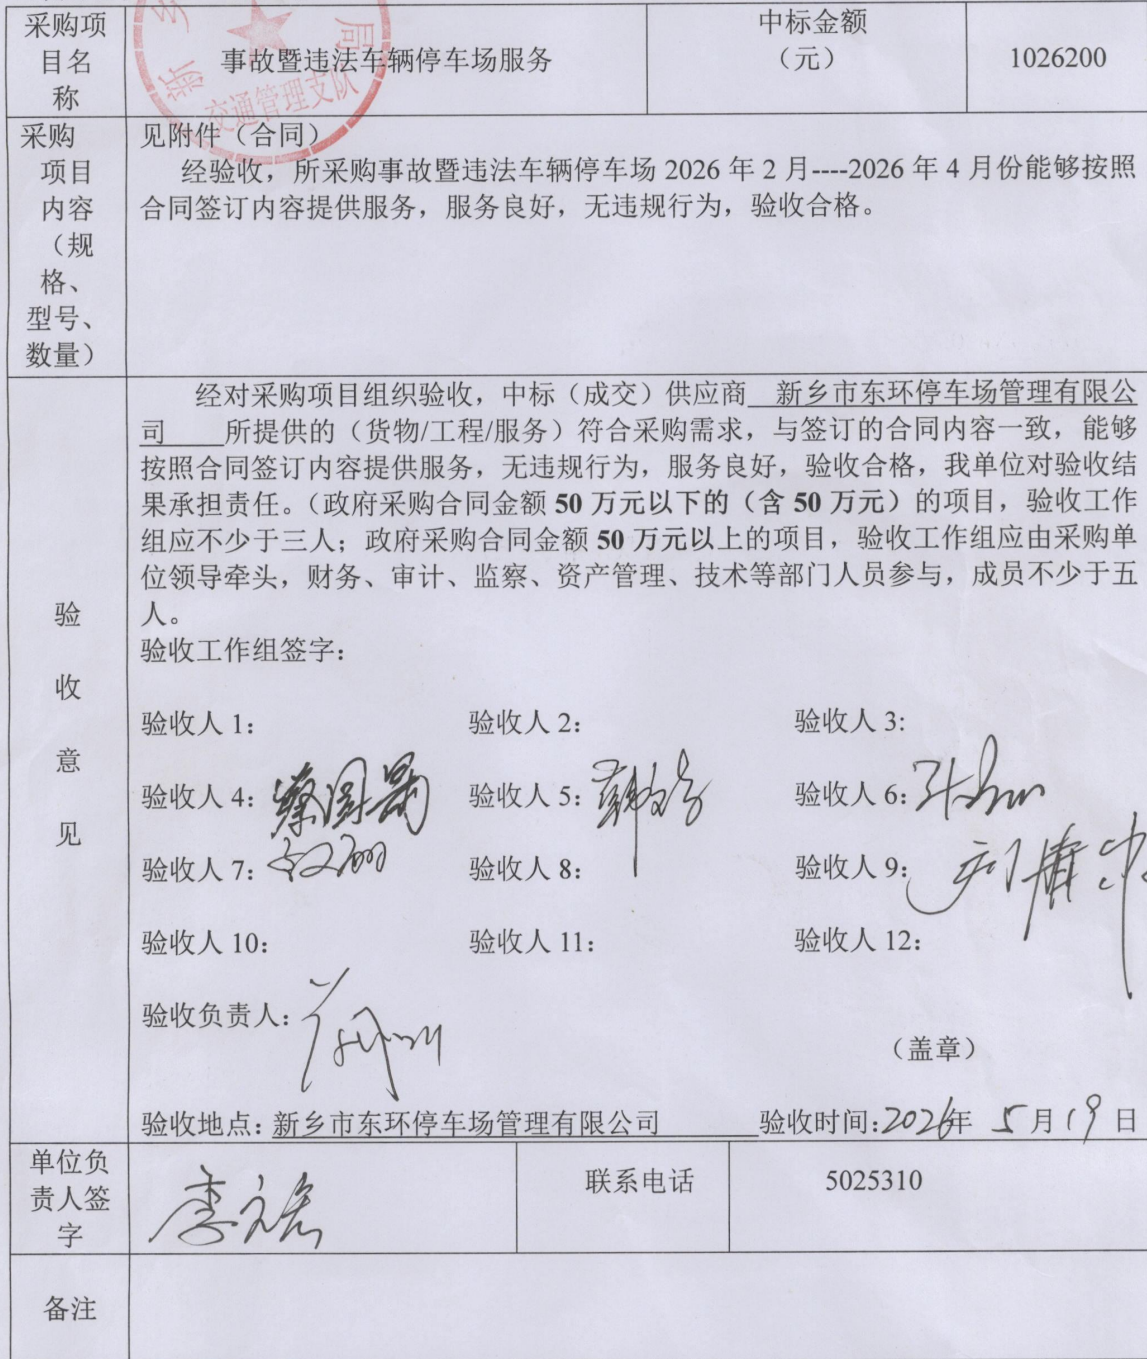 新乡 局
交通管理支队
采购项目名称
事故暨违法车辆停车场服务
中标金额
（元）
1026200
采购
项目
内容
（规
格、
型号、
数量）
见附件（合同）
经验收，所采购事故暨违法车辆停车场 2026 年 2 月----2026 年 4 月份能够按照
合同签订内容提供服务，服务良好，无违规行为，验收合格。
验
收
意
见
经对采购项目组织验收，中标（成交）供应商 新乡市东环停车场管理有限公
司 所提供的（货物/工程/服务）符合采购需求，与签订的合同内容一致，能够
按照合同签订内容提供服务，无违规行为，服务良好，验收合格，我单位对验收结
果承担责任。（政府采购合同金额 50 万元以下的（含 50 万元）的项目，验收工作
组应不少于三人；政府采购合同金额 50 万元以上的项目，验收工作组应由采购单
位领导牵头，财务、审计、监察、资产管理、技术等部门人员参与，成员不少于五
人。
验收工作组签字：
验收人 1： 验收人 2： 验收人 3:
验收人 4： 验收人 5： 验收人 6：
验收人 7： 验收人 8： 验收人 9：
验收人 10： 验收人 11： 验收人 12：
验收负责人：
（盖章）
验收地点：新乡市东环停车场管理有限公司 验收时间:2026年 5 月 19 日
单位负
责人签
字
联系电话
5025310
备注